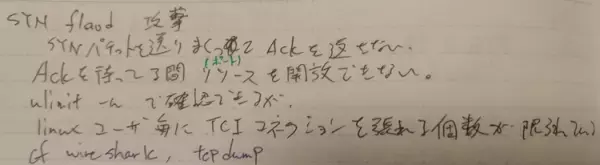 SYN flood 攻撃
SYNパケットを送りまくって Ackを返せない.
Ackを待ってる間 リソース(ポート)を開放できない。
ulimit -n で確認できるが,
linux ユーザ毎に TCI コネクションを張れる個数が 限られてい
cf wireshark, tcpdump